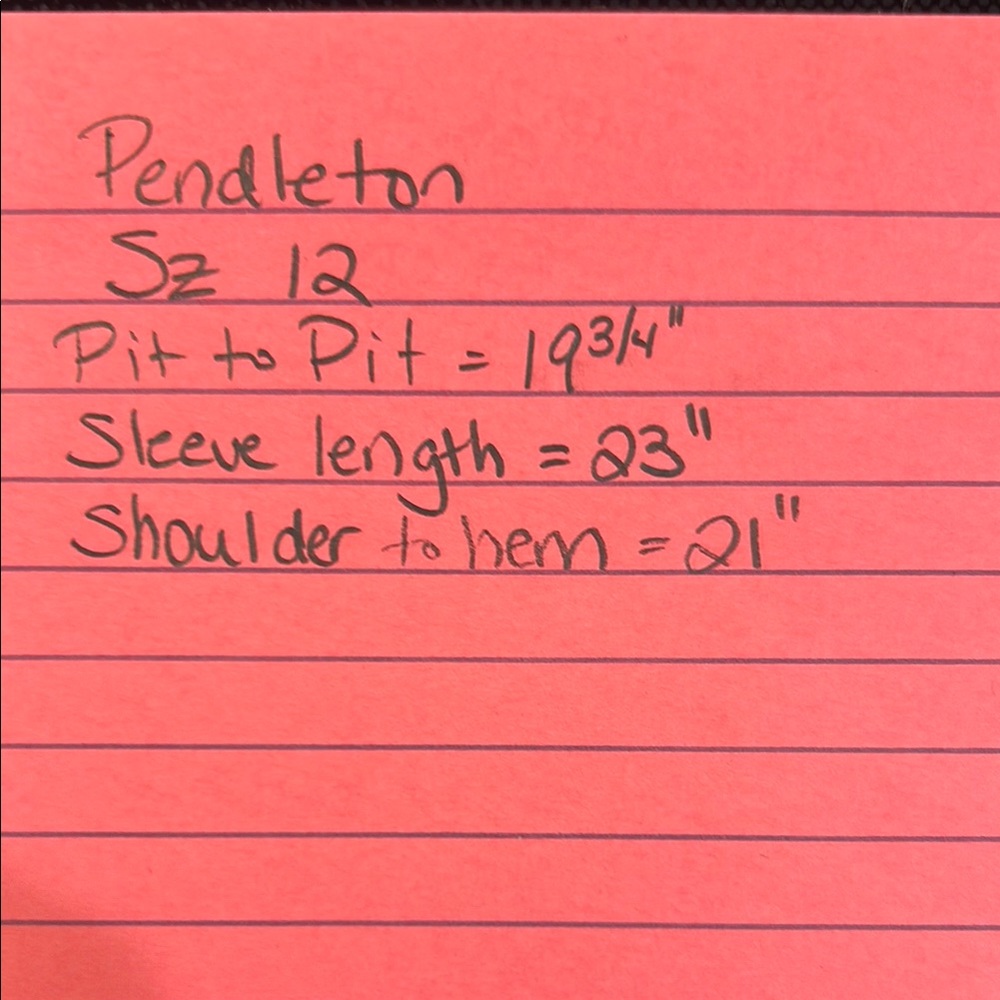 Pendleton
Sz 12
Pit to Pit = 19 3/4"
Sleeve length = 23"
Shoulder to hem = 21"